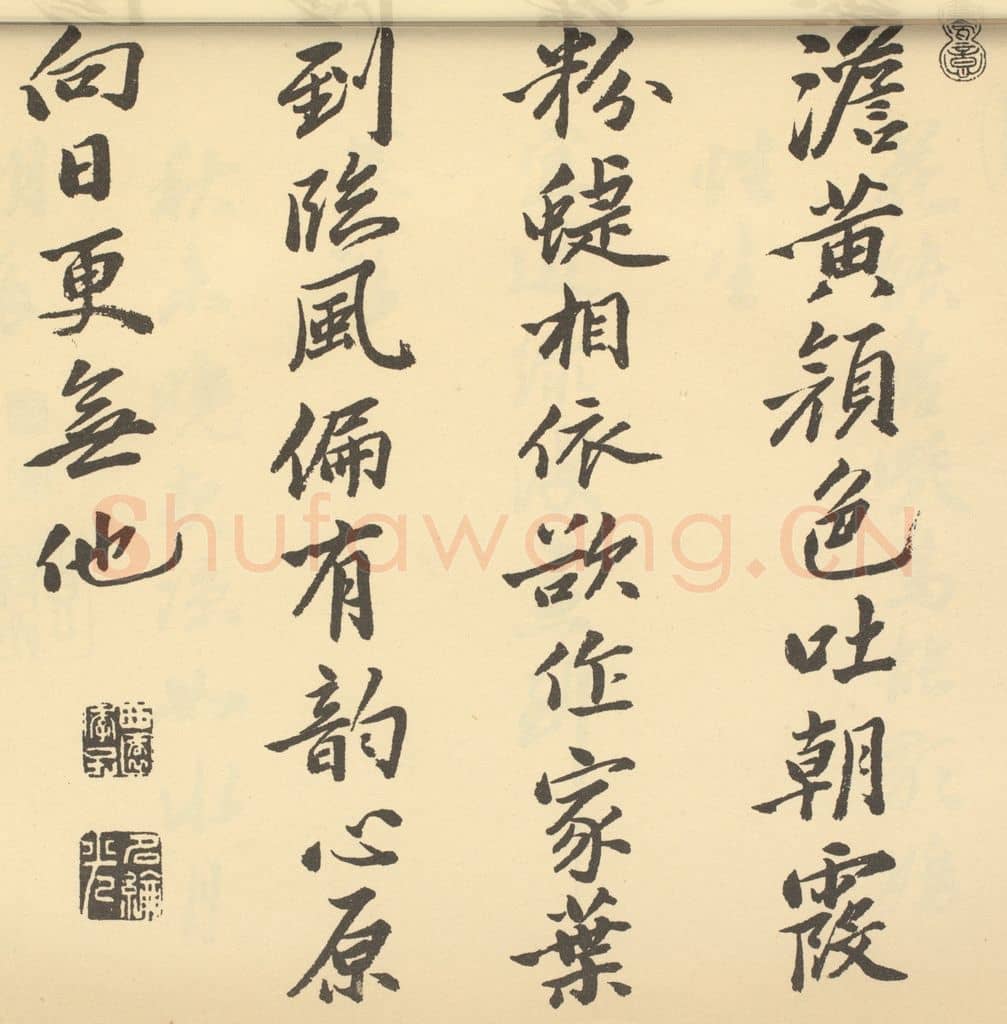 澹黄顔色吐朝霞
粉蝶相依欲作家葉
到臨風偏有韵心原
向日更無他
Shufawang.CN